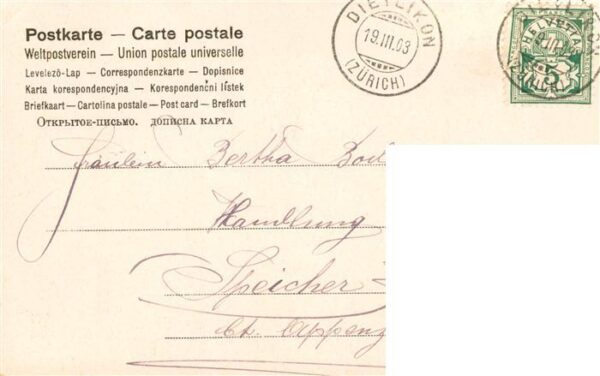 Postkarte — Carte postale
Weltpostverein — Union postale universelle
Levelező-Lap — Correspondenzkarte — Dopisnice
Karta korespondencyjna — Korespondenční lístek
Briefkaart — Cartolina postale — Post card — Brefkort
Открытое-письмо. дописна карта
DIETLIKON
19.III.03
(ZÜRICH)
HELVETIA
5
Fräulein Bertha
Handlung
Speicher
Ct. Appenz